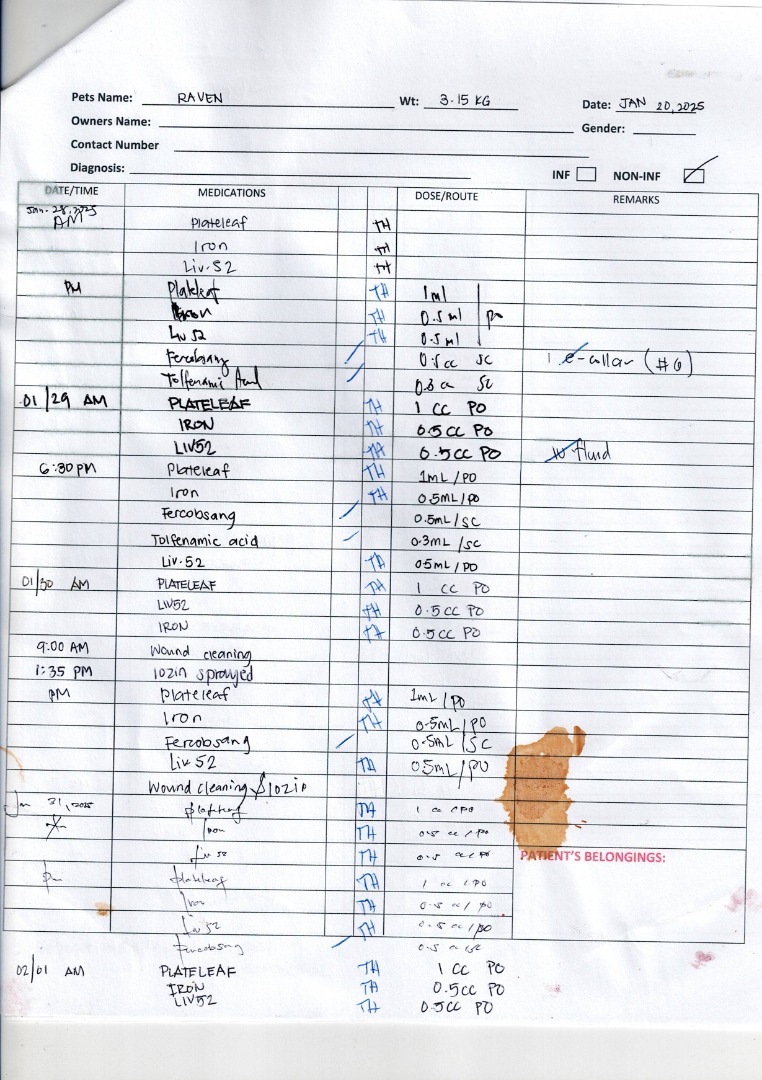 Pets Name: RAVEN Wt: 3.15 KG Date: JAN 20, 2025
Owners Name: Gender:
Contact Number
Diagnosis: INF NON-INF
DATE/TIME MEDICATIONS DOSE/ROUTE REMARKS
Jan. 28, 2025
AM Plateleaf TH
Iron TH
Liv-52 TH
PM Plateleaf TH 1ml
Iron TH 0.5ml po
Liv 52 TH 0.5ml
Fercobsang 0.5cc SC e-collar (#6)
Tolfenamic Acid 0.3 cc SC
01/29 AM PLATELEAF TH 1 CC PO
IRON TH 0.5CC PO
LIV52 TH 0.5CC PO fluid
6:30PM Plateleaf TH 1mL/PO
Iron TH 0.5ML/PO
Fercobsang 0.5mL/SC
Tolfenamic acid 0.3mL/SC
Liv.52 TH 0.5mL/PO
01/30 AM PLATELEAF TH 1 CC PO
LIV52 TH 0.5CC PO
IRON TH 0.5CC PO
9:00 AM Wound cleaning
1:35 PM 10zin sprayed
PM Plateleaf TH 1mL/PO
Iron TH 0.5mL/PO
Fercobsang 0.5mL/SC
Liv 52 TH 0.5mL/PO
Wound cleaning & 10zin
Jan 31, 2025 Plateleaf TH 1 cc/PO
Iron TH 0.5 cc/PO
Liv 52 TH 0.5 cc/PO
PATIENT'S BELONGINGS:
pm Plateleaf TH 1 cc/PO
Iron TH 0.5 cc/PO
Liv 52 TH 0.5 cc/PO
Fercobsang 0.5 cc SC
02/01 AM PLATELEAF TH 1 CC PO
IRON TH 0.5CC PO
LIV52 TH 0.5CC PO